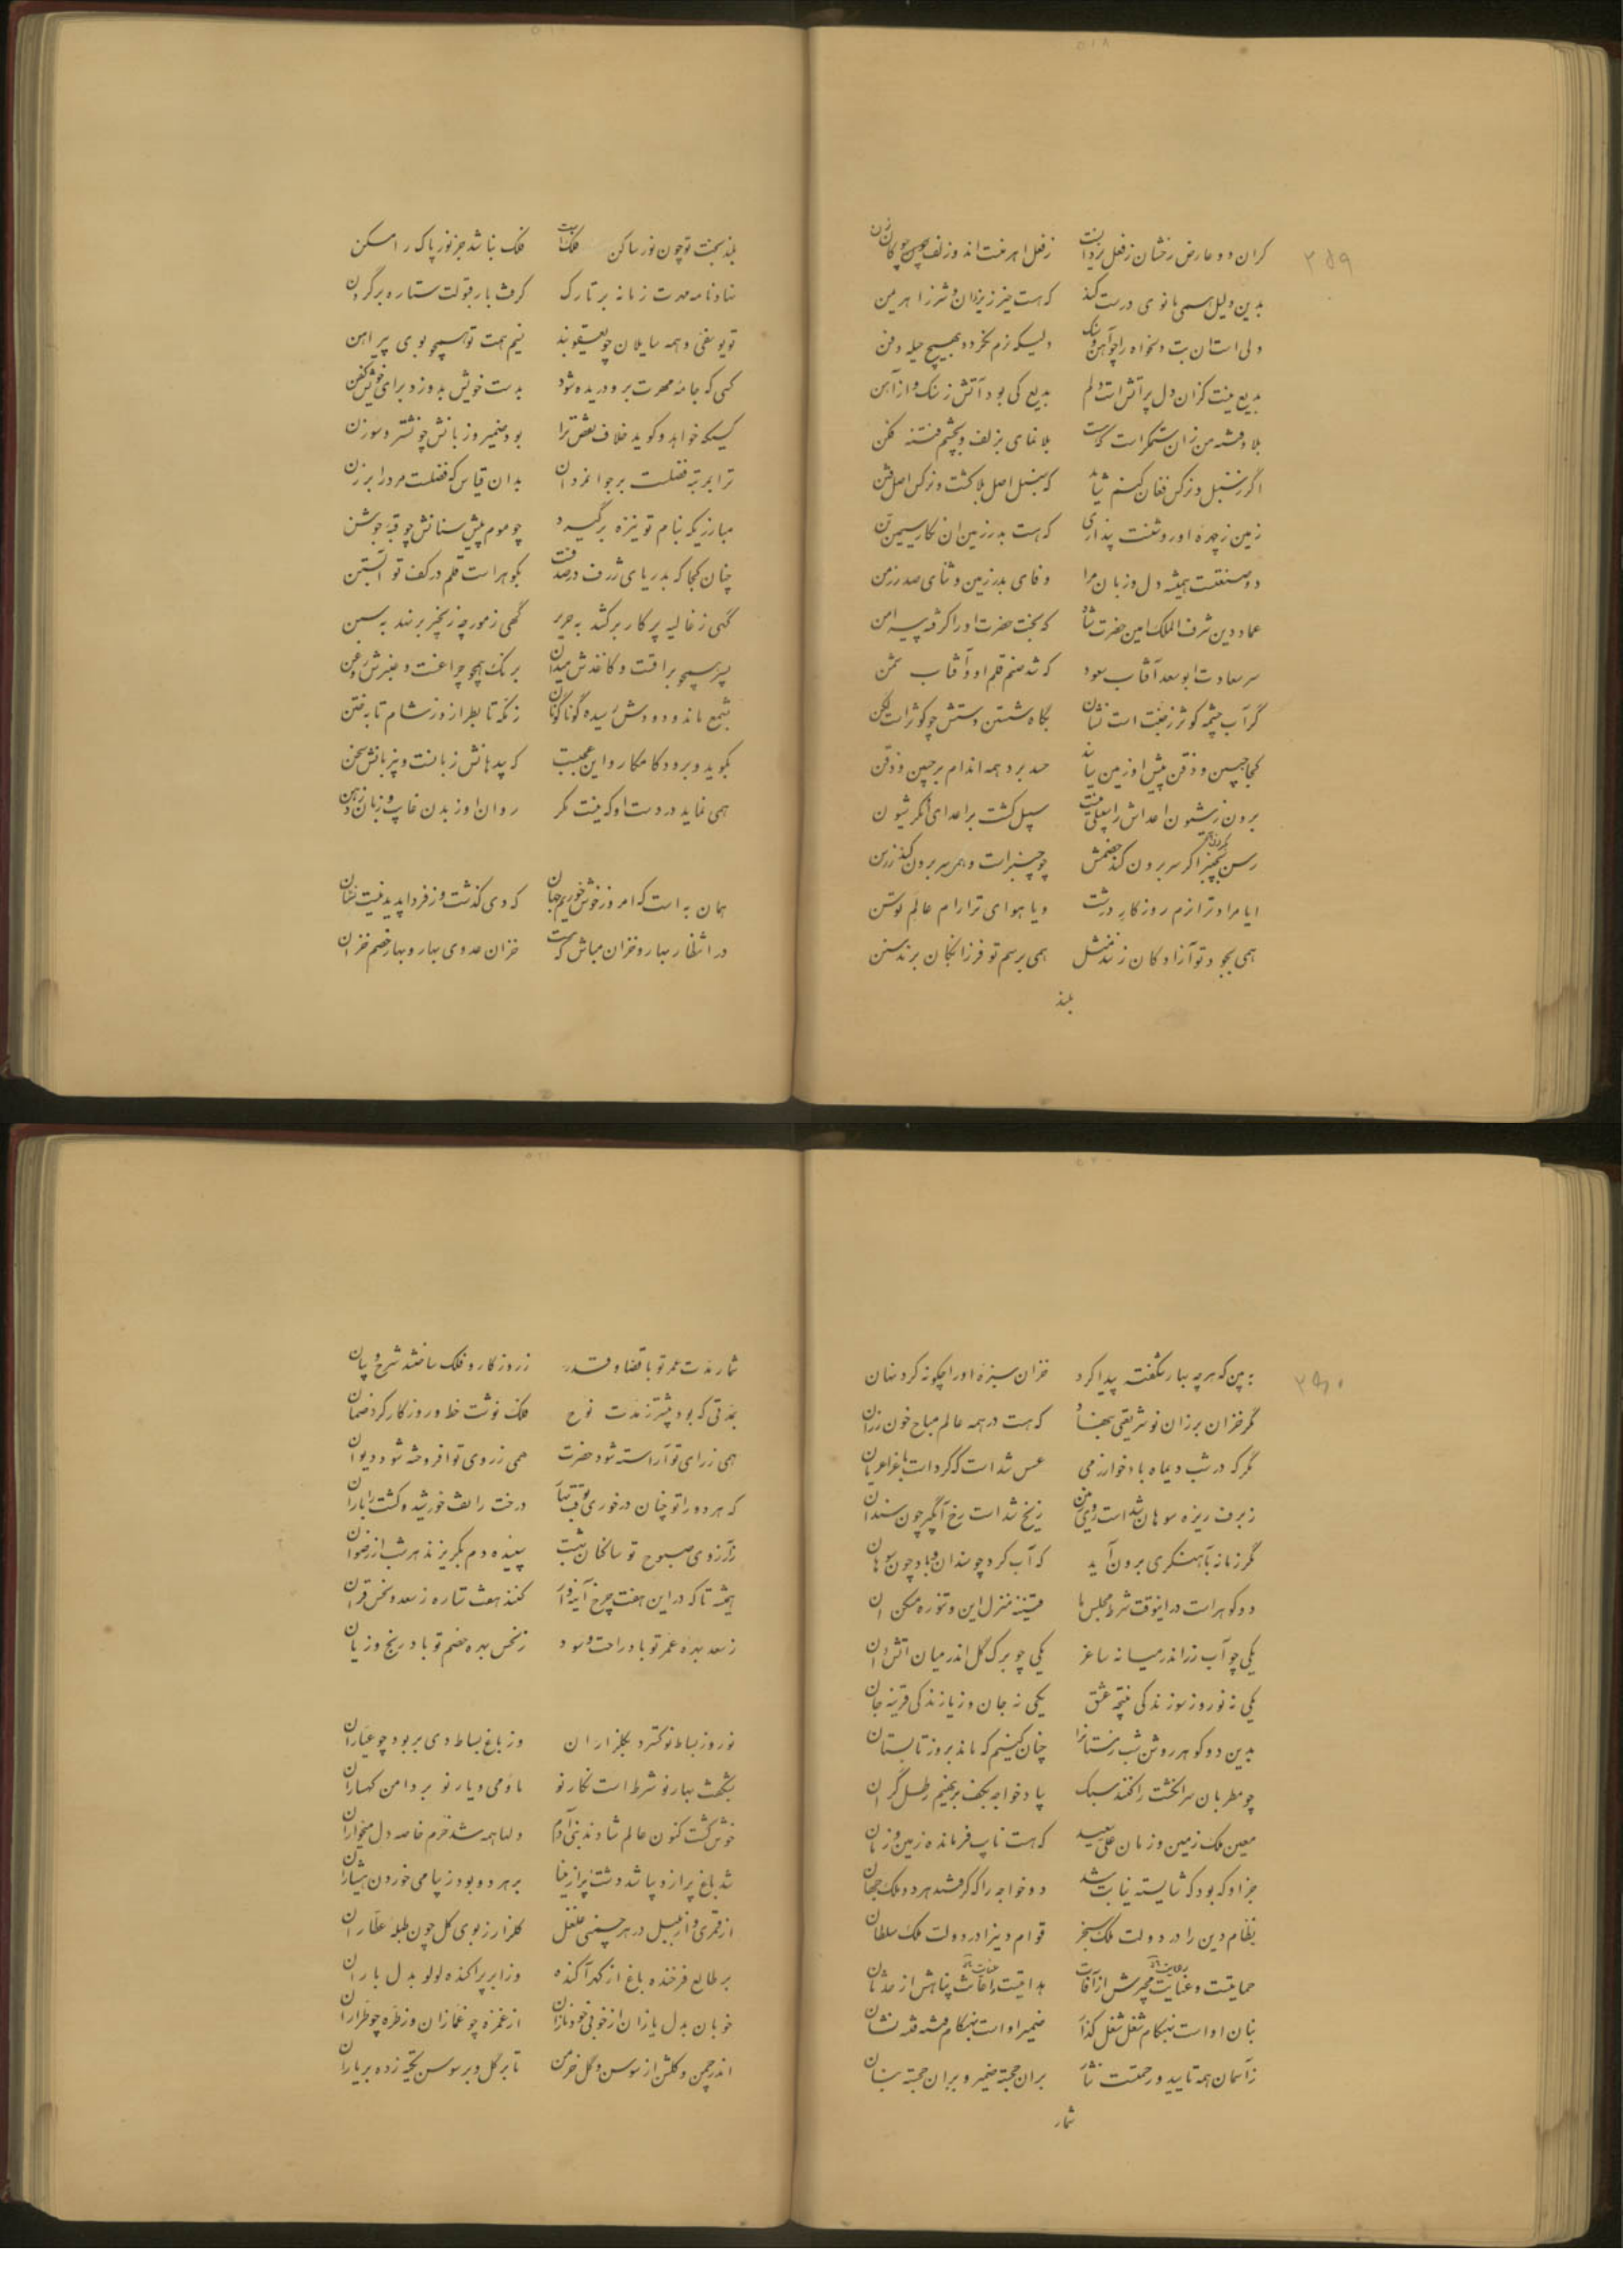 ۳۵۹
کران دو عارض رخشان ز فعل یزدانست ز فعل اهرمنست اندو زلف چون چوکان
بدین دلیل همی مانوی درست کند که هست خیر ز یزدان و شر ز اهرمن
دلی است آن بت دلخواه را چو آهن و سنک ولیکه نرم نکردد بهیچ حیله و فن
بدیع نیست کزان دل پر آتش است دلم بدیع کی بود آتش ز سنک و از آهن
بلا و فتنه من زان ستمکر است که هست بلا نمای بزلف و بچشم فتنه فکن
اگر ز سنبل و نرکس فغان کنم شاید که سنبل اصل بلا کشت و نرکس اصل فتن
زمین ز چهره او روشنست پنداری که هست بدر زمین آن نکار سیمین تن
دو صنعتست همیشه دل و زبان مرا وفای بدر زمین و ثنای صدر زمن
عماد دین شرف الملک امین حضرت شاه که بخت حضرت او را کرفته پیرامن
سر سعادت ابوسعد آفتاب سعود که شد صنم قلم او و آفتاب شمن
گر آب چشمه کوثر ز جنت است نشان بگاه شستن دستش چو کوثر است لکن
کجا جبین و ذقن پیش او زمین ساید حسد برد همه اندام بر جبین و ذقن
برون ز شیون اعداش را سبیلی نیست سبیل کشت بر اعدای او مکر شیون
رسن بچنبر اکر سر برون کند خصمش چو چنبر است و همی سر برون کند ز رسن
ایا مراد ترا نرم روزکار درشت و یا هوای ترا رام عالم توسن
همی بجود تو آزادکان زنند مثل همی برسم تو فرزانکان برند سنن
بلند
بلند بخت تو چون نور ساکن فلک است فلک نباشد جز نور پاک را مسکن
نهاد نامه مهرت زمانه بر تارک کرفت بار قبولت ستاره بر گردن
تو یوسفی و همه سایلان چو یعقوبند نسیم همت تو همچو بوی پیراهن
کسی که جامه مهرت برو دریده شود بدست خویش بدوزد برای خویش کفن
کسیکه خواهد و کوید خلاف نقص ترا بود ضمیر و زبانش چو نشتر و سوزن
ترا بمرتبه فضلست بر جوانمردان بدان قیاس که فضلست مرد را بر زن
مبارزیکه بنام تو نیزه برگیرد چو موم پیش سنانش چو قبه جوشن
چنان کجا که بدریای ژرف در صدفست بگوهر است قلم در کف تو آبستن
گهی ز غالیه پرکار برکشد بحریر گهی ز مورچه زنجیر برنهد بسمن
بسیر همچو براقست و کاغذش میدان برنک همچو چراغست و عنبرش روغن
بشمع ماند و دودش رسیده گوناگون ز نکته تا بطراز و ز شام تا بختن
بگوید و برود کامکار و این عجبست که بیدهانش زبانست و بیزبانش سخن
همی نماید در دست او که نیست مکر روان او ز بدن غایب و زبان ز دهن
همان به است که امروز خوش خوریم جهان که دی گذشت و ز فردا پدید نیست نشان
در انتظار بهار و خزان مباش که هست خزان عدوی بهار و بهار خصم خزان
۳۶۰
ببین که هرچه بهار شکفته پیدا کرد خزان سبزه او را چکونه کرد نهان
مگر خزان برزان نو شریعتی بنهاد که هست در همه عالم مباح خون رزان
مگر که در شب دیماه باد خوارزمی عسس شد است که کرد است باغ را عریان
ز برف ریزه سوهان شد است روی زمین ز یخ شد است رخ آبگیر چون سندان
مگر زمانه بآهنگری برون آید که آب کرد چو سندان و باد چون سوهان
دو کوهر است در اینوقت شرط مجلس ما قنینه منزل این و تنوره مسکن آن
یکی چو آب زر اندر میانه ساغر یکی چو برک گل اندر میان آتشدان
یکی نه نور و ز سوزندگی نتیجه عشق یکی نه جان و ز یازندگی قرینه جان
بدین دو کوهر روشن شب زمستانرا چنان کنیم که ماند بروز تابستان
چو مطربان سر انگشت را کنند سبک بیاد خواجه بکف برنهیم رطل گران
معین ملک زمین و زمان علی سعید که هست نایب فرمانده زمین و زمان
جز او که بود که شایسته نیابت شد دو خواجه را که کرفتند هر دو ملک جهان
نظام دین را در دولت ملک سنجر قوام دین را در دولت ملک سلطان
حمایتست و عنایت مجرش از آفات هدایتست و اعانت پناهش از حدثان
بنان او است بهنکام شغل شغل گذار ضمیر او است بهنکام فتنه فتنه نشان
ز آسمان همه تایید و رحمتست نثار بران خجسته ضمیر و بران خجسته بنان
شمار
شمار مدت عمر تو با قضا و قدر ز روزکار و فلک ساختند شرح و بیان
بمدتی که بود پیشتر ز مدت نوح فلک نوشت خط و روزکار کرد ضمان
همی ز رای تو آراسته شود حضرت همی ز روی تو افروخته شود دیوان
که هر دو را تو چنان درخوری بوقت نیاز درخت را تف خورشید و کشت را باران
ز آرزوی صبوح تو ساکنان بهشت سپیده دم بگریزند هر شب از رضوان
همیشه تا که در این هفت چرخ آینه وار کنند هفت ستاره ز سعد و نحس قران
ز سعد بهره عمر تو باد راحت و سود ز نحس بهره خصم تو باد رنج و زیان
نوروز بساط نو گسترد بکلزاران وز باغ بساط دی بربود چو عیاران
بشکفت بهار نو شرط است نگار نو ما و می و یار نو بر دامن کهساران
خوش گشت کنون عالم شادند بنی آدم دلها همه شد خرم خاصه دل میخواران
شد باغ پر از دیبا شد دشت پر از مینا بر هر دو بود زیبا می خوردن هشیاران
از قمری و از بلبل در هر چمنی غلغل گلزار ز بوی گل چون طبله عطاران
بر طالع فرخنده باغ از گهر آکنده وز ابر پراکنده لولو بدل باران
خوبان بدل یازان از خوبی خود نازان از غمزه چو غمازان وز طره چو طراران
اندر چمن و گلشن از سوسن و گل خرمن تا بر گل و بر سوسن تکیه زده بر یاران